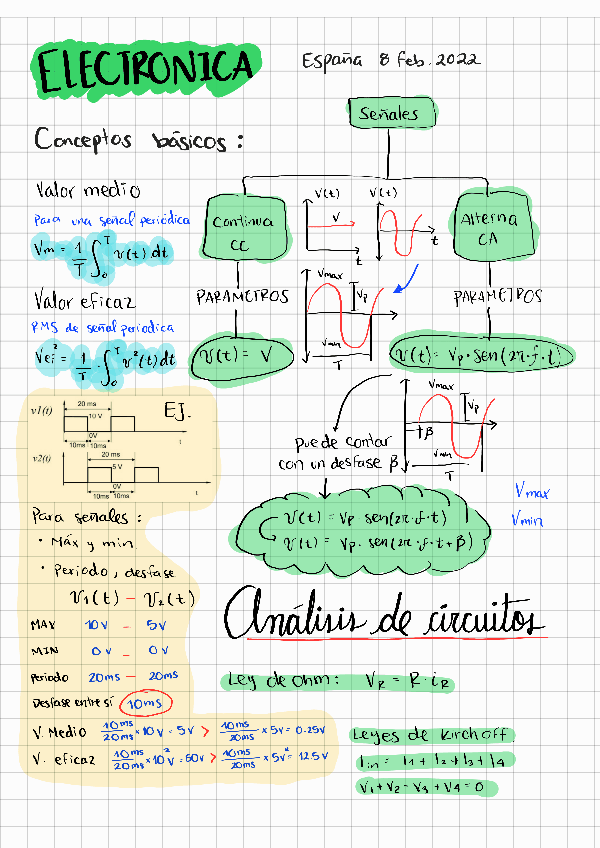 ELECTRONICA
España 8 feb. 2022
Señales
Conceptos básicos :
Valor medio
Para una señal periódica
Vm = 1/T ∫₀ᵀ v(t) dt
Valor eficaz
RMS de señal periodica
Vef² = 1/T · ∫₀ᵀ v²(t) dt
Continua
CC
V(t)
V
t
V(t)
t
Alterna
CA
PARAMETROS
Vmax
Vp
Vmin
T
PARAMETROS
V(t) = V
V(t) = Vp · sen(2π · f · t)
EJ.
v1(t)
20 ms
10 V
0V
10ms
10ms
t
v2(t)
20 ms
5 V
0V
10ms
10ms
t
puede contar
con un desfase β
Vmax
Vp
β
Vmin
T
Vmax
Vmin
V(t) = Vp sen(2π · f · t)
V(t) = Vp · sen(2π · f · t + β)
Para señales :
• Máx y min
• Periodo, desfase
V₁(t) – V₂(t)
MAX 10V – 5V
MIN 0V – 0V
Periodo 20ms – 20ms
Desfase entre sí 10ms
V. Medio 10ms/20ms × 10V = 5V > 10ms/20ms × 5V = 0.25V
V. eficaz 10ms/20ms × 10²V = 50V > 10ms/20ms × 5V² = 12.5V
Análisis de circuitos
Ley de ohm : VR = R · iR
Leyes de Kirchoff
Iin = I1 + I2 + I3 + I4
V1 + V2 – V3 + V4 = 0